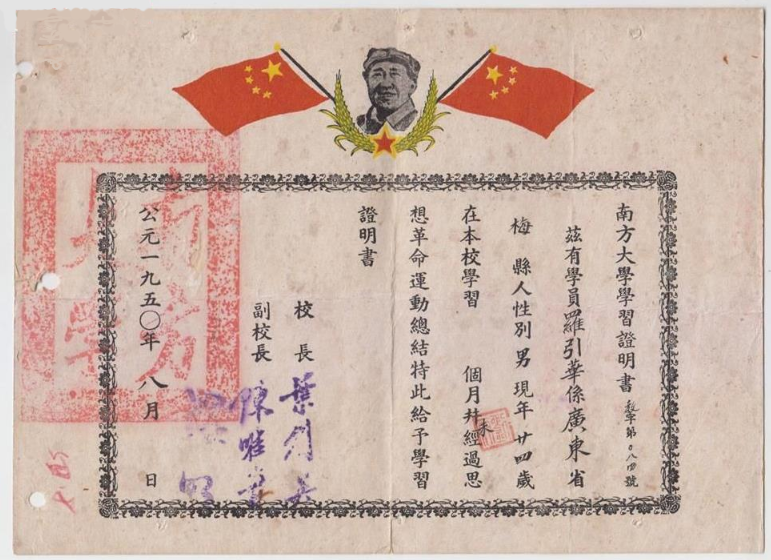 南方大學學習證明書
教字第〇八四號
茲有學員羅引華係廣東省
梅縣人性別男現年廿四歲
在本校學習 個月未經過思
想革命運動總結特此給予學習
證明書
校長 葉劍英
副校長 陳唯實
公元一九五〇年八月 日
南方大學